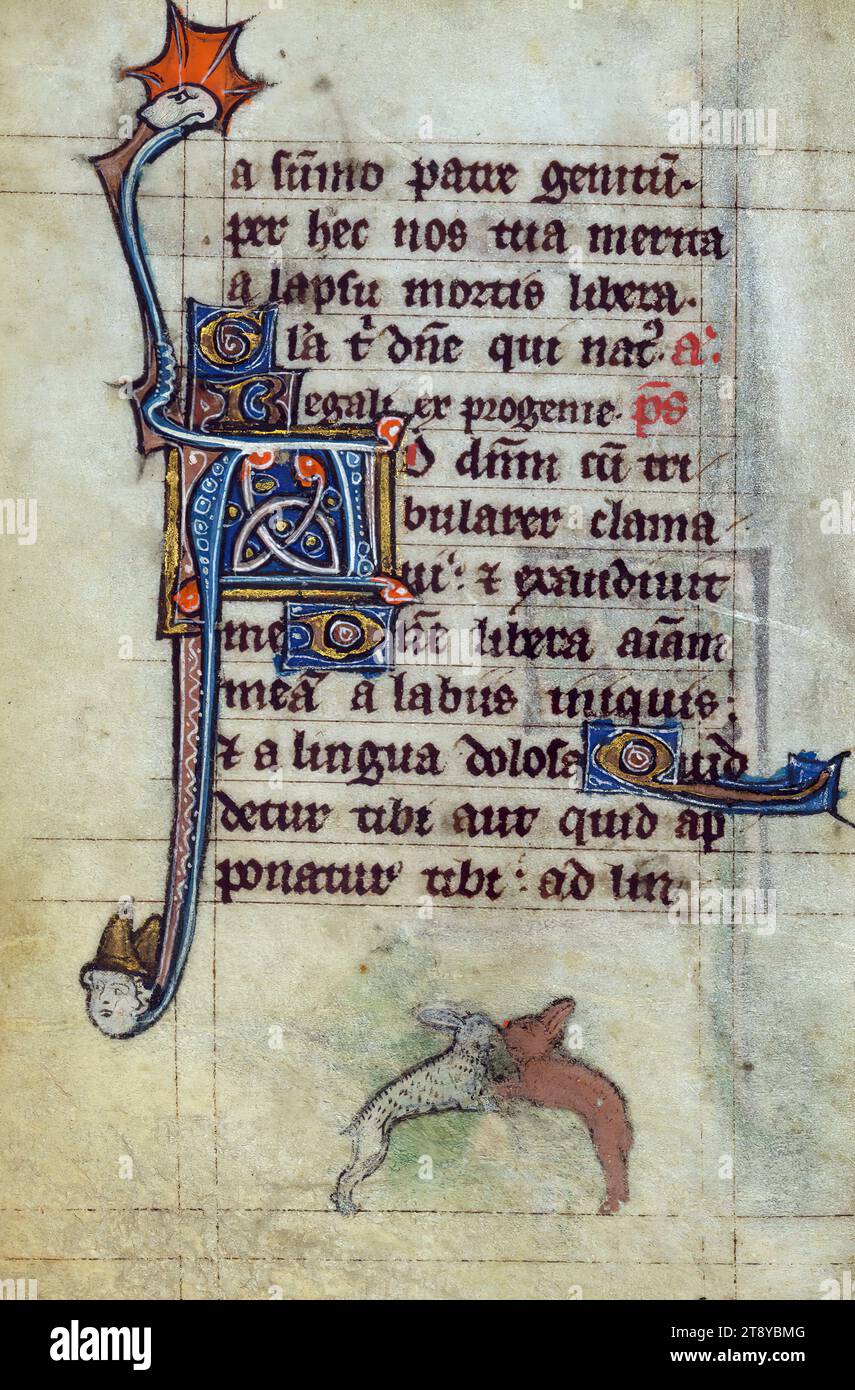 a sūmo patre genitū·
per hec nos tua merita
a lapsu mortis libera·
Gl'a t' dn̄e qui nat9 a'
Regali ex progenie· p̄s
AD dn̄m cū tri
bularer clama
ui: ⁊ exaudiuit
me Dn̄e libera aīam
meā a labiis iniquis:
⁊ a lingua dolosa Quid
detur tibi aut quid ap
ponatur tibi: ad lin
alamy
alamy
alamy
Image ID: 2T8YBMG
www.alamy.com